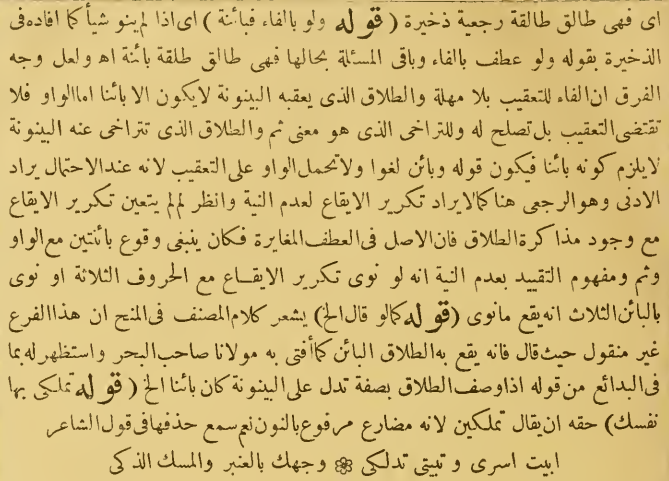 اى فهى طالق طالقة رجعية ذخيرة (قوله ولو بالفاء فبائنة) اى اذا لم ينو شيأ كما افاده فى
الذخيرة بقوله ولو عطف بالفاء وباقى المسئلة بحالها فهى طالق طلقة بائنة اه ولعل وجه
الفرق ان الفاء للتعقيب بلا مهلة والطلاق الذى يعقبه البينونة لا يكون الا بائنا اما الواو فلا
تقتضى التعقيب بل تصلح له وللتراخى الذى هو معنى ثم والطلاق الذى تتراخى عنه البينونة
لا يلزم كونه بائنا فيكون قوله وبائن لغوا ولا تحمل الواو على التعقيب لانه عند الاحتمال يراد
الادنى وهو الرجعى هنا كما لا يراد تكرير الايقاع لعدم النية وانظر لم لم يتعين تكرير الايقاع
مع وجود مذاكرة الطلاق فان الاصل فى العطف المغايرة فكان ينبغى وقوع بائنتين مع الواو
وثم ومفهوم التقييد بعدم النية انه لو نوى تكرير الايقاع مع الحروف الثلاثة او نوى
بالبائن الثلاث انه يقع مانوى (قوله كما لو قال الخ) يشعر كلام المصنف فى المنح ان هذا الفرع
غير منقول حيث قال فانه يقع به الطلاق البائن كما أفتى به مولانا صاحب البحر واستظهر له بما
فى البدائع من قوله اذا وصف الطلاق بصفة تدل على البينونة كان بائنا الخ (قوله تملكى بها
نفسك) حقه ان يقال تملكين لانه مضارع مرفوع بالنون نعم سمع حذفها فى قول الشاعر
ابيت اسرى وتبيتى تدلكى ❁ وجهك بالعنبر والمسك الذكى